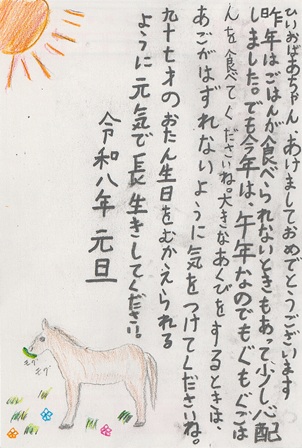 ひいおばあちゃん あけましておめでとうございます
昨年はごはんが食べられないときもあって少し心配
しました。でも今年は、午年なのでもぐもぐごは
んを食べてくださいね。大きなあくびをするときは、
あごがはずれないように気をつけてくださいね。
九十七才のおたん生日をむかえられる
ように元気で長生きしてください。
令和八年 元旦
モグ
モグ